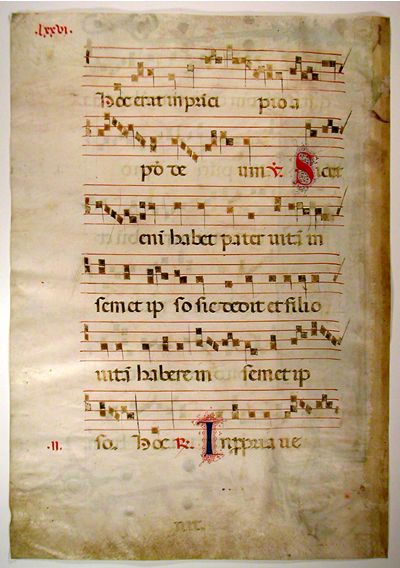 .lxxvi.
Hoc erat in prici pio a
po te um V. Sicut
eni habet pater uita in
semet ip so sic dedit et filio
uita habere in semet ip
.ii. so. Hoc R. In ppria ue
nit.